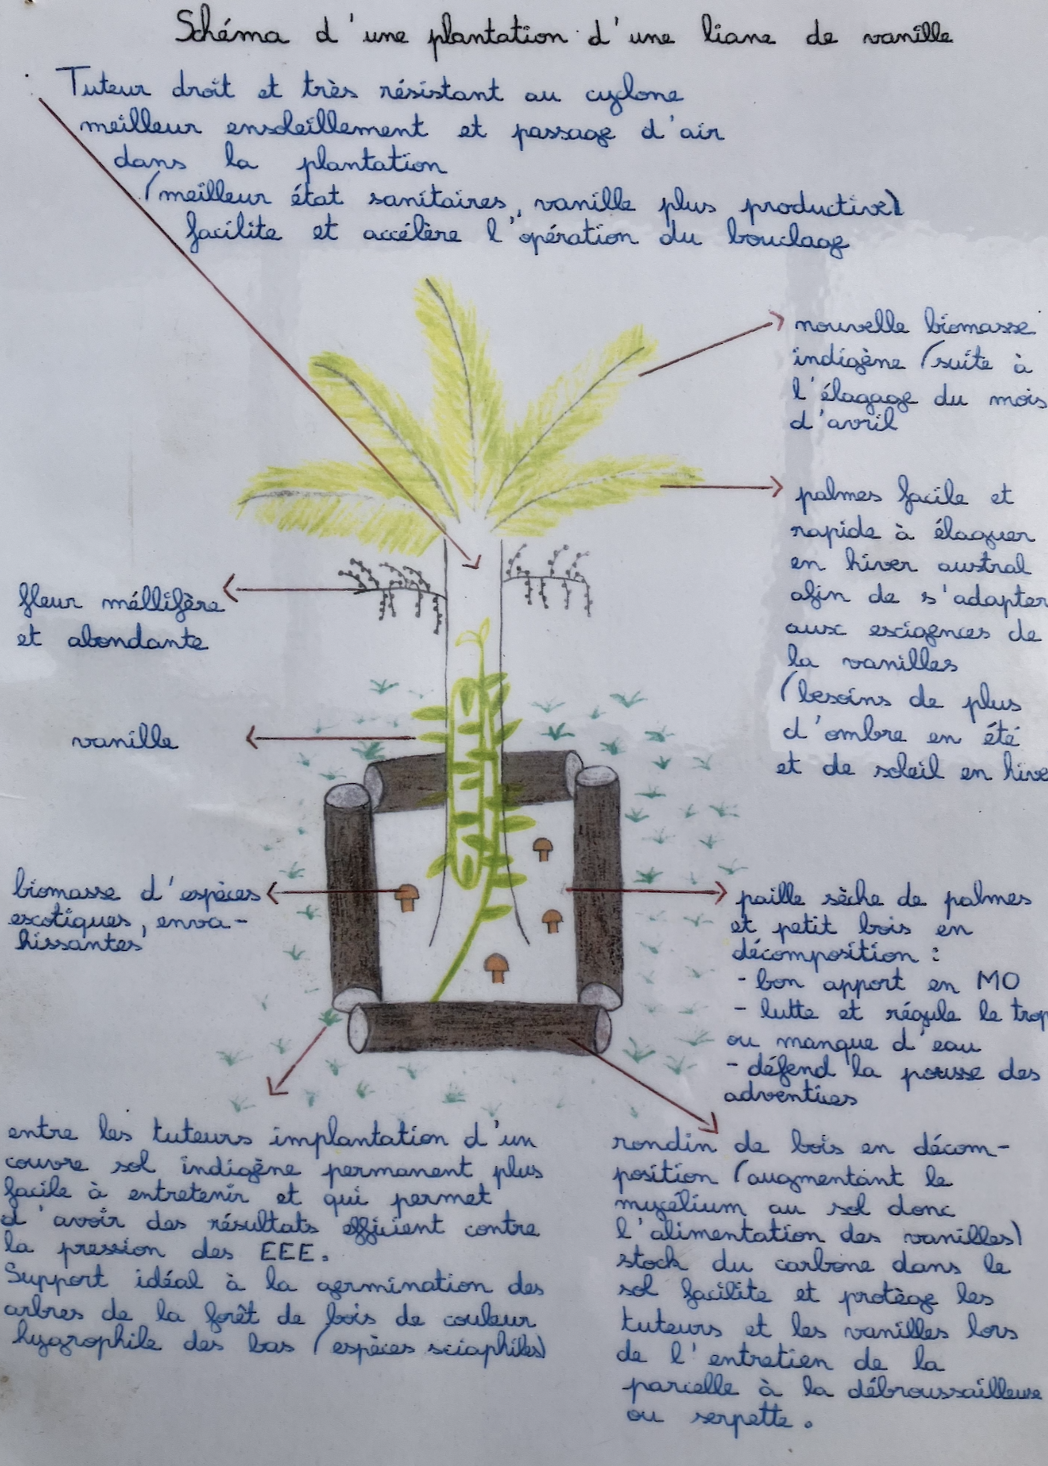 Schéma d'une plantation d'une liane de vanille
Tuteur droit et très résistant au cyclone
meilleur ensoleillement et passage d'air
dans la plantation
(meilleur état sanitaires, vanille plus productive)
facilite et accélère l'opération du bouclage
nouvelle biomasse
indigène (suite à
l'élagage du mois
d'avril
palmes facile et
rapide à élaguer
en hiver austral
afin de s'adapter
aux exigences de
la vanilles
(besoins de plus
d'ombre en été
et de soleil en hive
fleur méllifère
et abondante
vanille
biomasse d'espèces
exotiques, enva-
hissantes
paille sèche de palmes
et petit bois en
décomposition :
- bon apport en MO
- lutte et régule le trop
ou manque d'eau
- défend la pousse des
adventices
entre les tuteurs implantation d'un
couvre sol indigène permanent plus
facile à entretenir et qui permet
d'avoir des résultats efficient contre
la pression des EEE.
Support idéal à la germination des
arbres de la forêt de bois de couleur
hygrophile des bas (espèces sciaphiles)
rondin de bois en décom-
position (augmentant le
mycélium au sol donc
l'alimentation des vanilles)
stock du carbone dans le
sol facilite et protège les
tuteurs et les vanilles lors
de l'entretien de la
parcelle à la débroussailleuse
ou serpette.